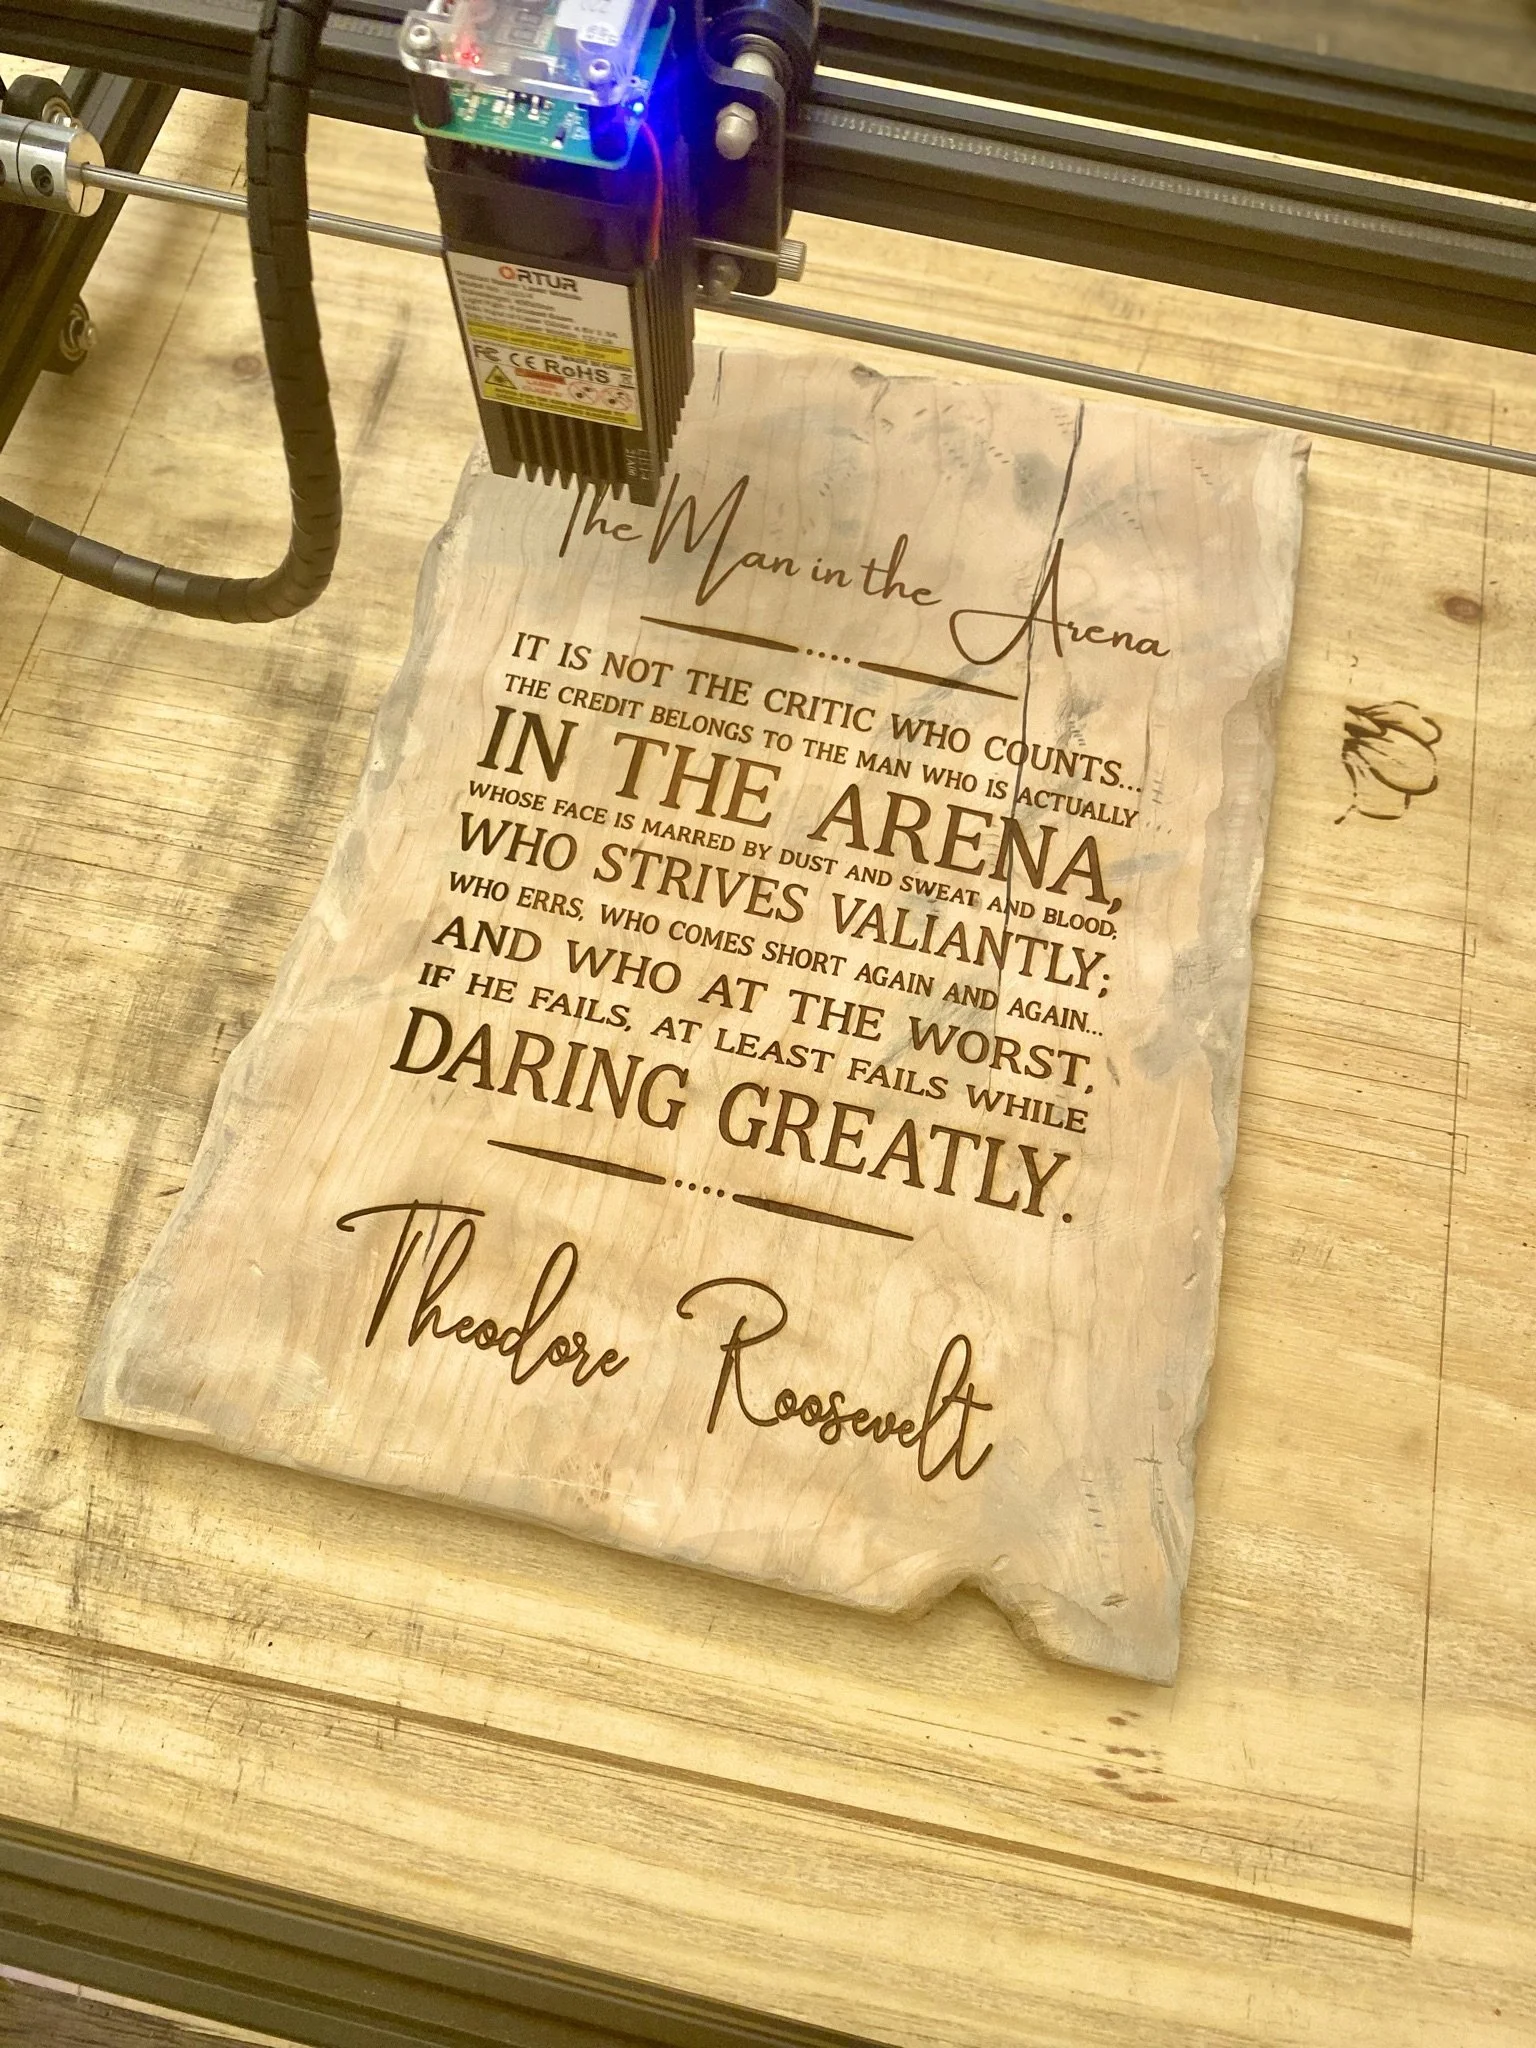 ORTUR
FC CE RoHS
The Man in the Arena
IT IS NOT THE CRITIC WHO COUNTS...
THE CREDIT BELONGS TO THE MAN WHO IS ACTUALLY
IN THE ARENA,
WHOSE FACE IS MARRED BY DUST AND SWEAT AND BLOOD;
WHO STRIVES VALIANTLY;
WHO ERRS, WHO COMES SHORT AGAIN AND AGAIN...
AND WHO AT THE WORST,
IF HE FAILS, AT LEAST FAILS WHILE
DARING GREATLY.
Theodore Roosevelt